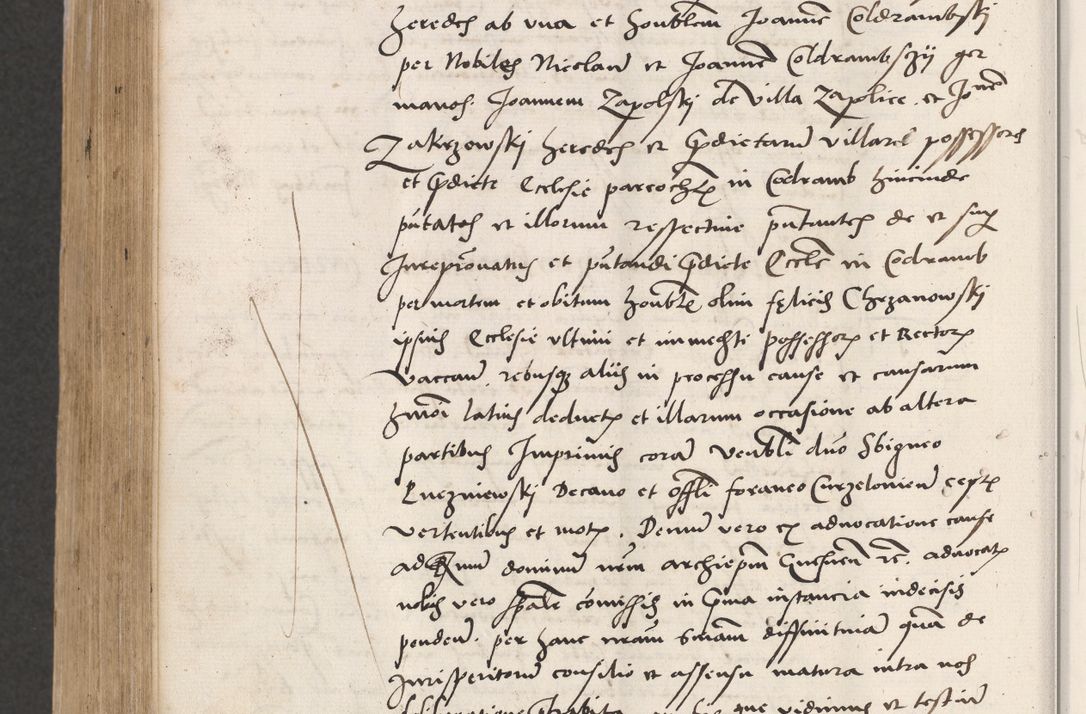 heredes ab una et honoblem Joannem Coldrambski
per Nobiles Nicolaum et Joannem Coldrambszÿ ger
manos. Joannem Zapolskj de Villa Zapolice et Jonem
Zakrzowskj heredes et pdictarum villarum possessores
et pdicte Ecclesie parrochis in Codramb hincinde
pntatos et illorum respective pntantes de et sup
Jurepronatus et pntandi pdicte Eccle in Codramb
per mortem et obitum honoble olim felicis Chrzanowskj
ipsius Ecclesie ultimi et immedti possessoris et Rectoris
vaccan. rebusque aliis in processu cause et causarum
hmoi latius deductis et illarum occasione ab altera
partibus Imprimis coram Venbli dno Sbigneo
Knezniewskj Decano et offli foraneo Curzeloviens cept
vertentibus et motis. Demum vero ex advocatione cause
ad Rmum dominum nrm archiepm Gnesnen re. advocatis
nobis vero spale comissis in pma instancia indecisis
penden. per hanc nram sniam diffinitivam quam de
Jurisperitorum consilio et assensu matura intra nos
deliberatione prehabita que vidimus et testium